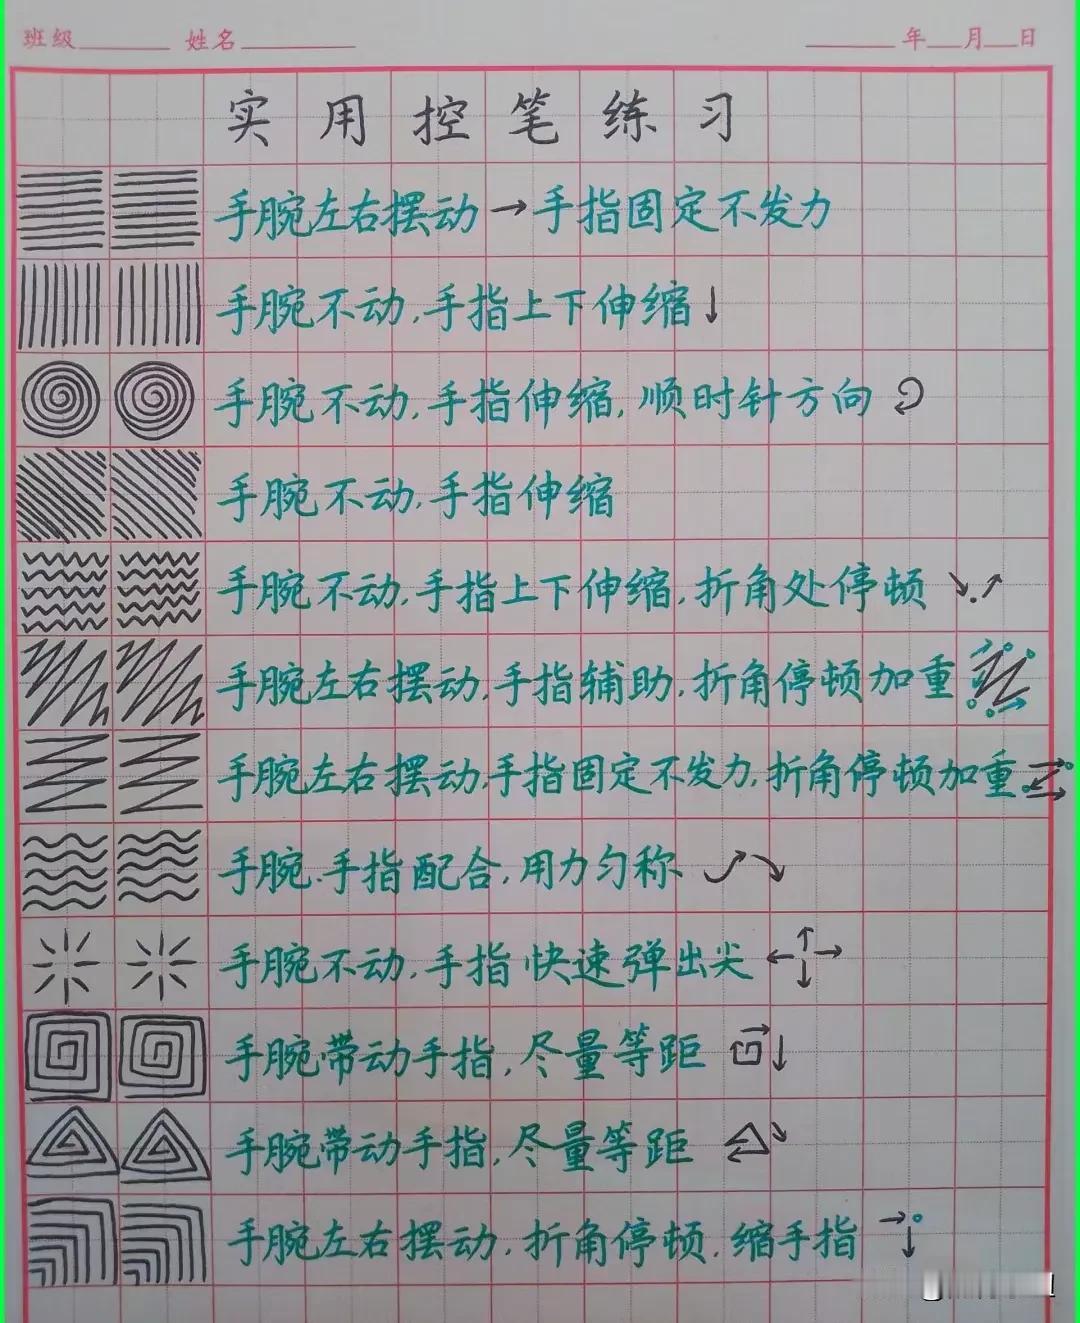 班级 姓名 年 月 日
实用控笔练习
手腕左右摆动→手指固定不发力
手腕不动,手指上下伸缩↓
手腕不动,手指伸缩,顺时针方向
手腕不动,手指伸缩
手腕不动,手指上下伸缩,折角处停顿
手腕左右摆动,手指辅助,折角停顿加重
手腕左右摆动,手指固定不发力,折角停顿加重
手腕、手指配合,用力匀称
手腕不动,手指快速弹出尖
手腕带动手指,尽量等距
手腕带动手指,尽量等距
手腕左右摆动,折角停顿,缩手指